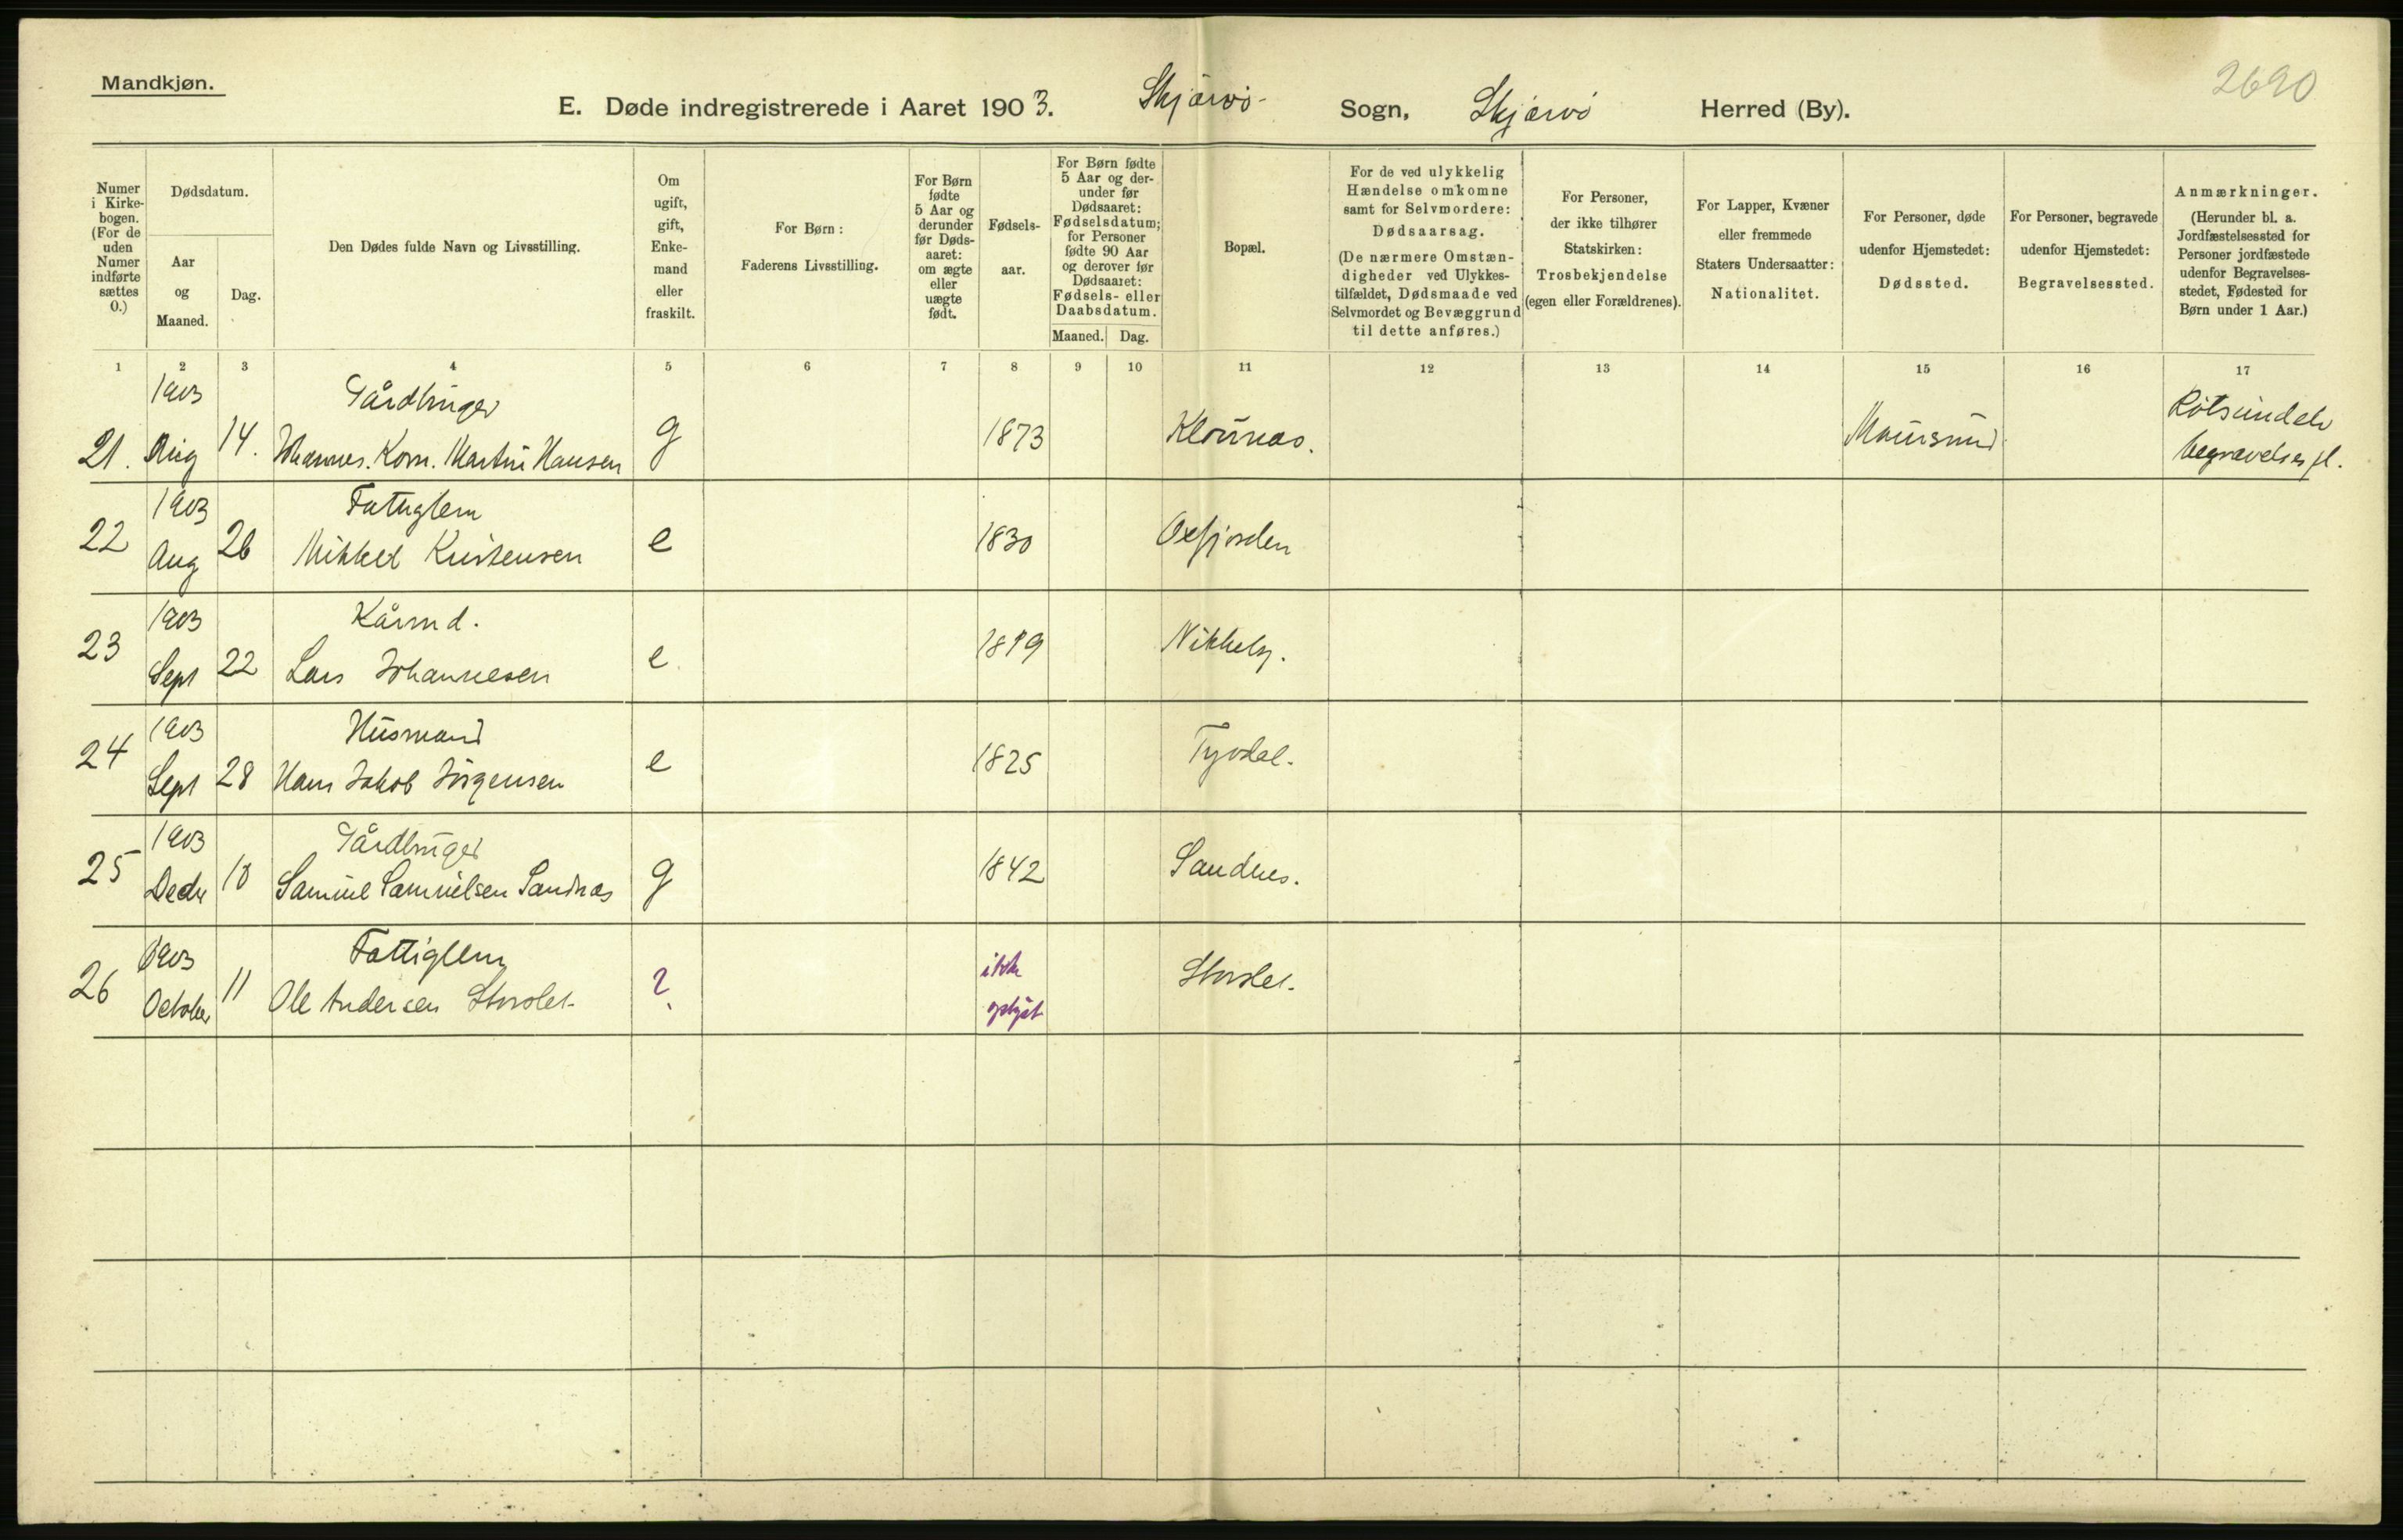 Mandkjøn.
2690
E. Døde indregistrerede i Aaret 1903. Skjærvö Sogn, Skjærvö Herred (By).
Numer i Kirkebogen. (For de uden Numer indførte sættes 0.)
Dødsdatum.
Aar og Maaned.
Dag.
Den Dødes fulde Navn og Livsstilling.
Om ugift, gift, Enkemand eller fraskilt.
For Børn: Faderens Livsstilling.
For Børn fødte 5 Aar og derunder før Dødsaaret: om ægte eller uægte født.
Fødselsaar.
For Børn fødte 5 Aar og derunder før Dødsaaret: Fødselsdatum; for Personer fødte 90 Aar og derover før Dødsaaret: Fødsels- eller Daabsdatum.
Maaned. Dag.
Bopæl.
For de ved ulykkelig Hændelse omkomne samt for Selvmordere: Dødsaarsag. (De nærmere Omstændigheder ved Ulykkestilfældet, Dødsmaade ved Selvmordet og Bevæggrund til dette anføres.)
For Personer, der ikke tilhører Statskirken: Trosbekjendelse (egen eller Forældrenes).
For Lapper, Kvæner eller fremmede Staters Undersaatter: Nationalitet.
For Personer, døde udenfor Hjemstedet: Dødssted.
For Personer, begravede udenfor Hjemstedet: Begravelsessted.
Anmærkninger. (Herunder bl. a. Jordfæstelsessted for Personer jordfæstede udenfor Begravelsesstedet, Fødested for Børn under 1 Aar.)
1 2 3 4 5 6 7 8 9 10 11 12 13 14 15 16 17
1903 Gårdbruger Rötsundelv
21. Aug 14. Johannes. Korn. Martin Hansen g 1873 Klovnæs. Maursund begravelsespl.
1903 Fattiglem
22 Aug 26 Mikkel Kristensen e 1830 Oxfjorden
1903 Kårmd.
23 Sept 22 Lars Johannesen e. 1819 Nikkelsy.
1903 Husmand
24 Sept 28 Hans Jakob Jörgensen e 1825 Tyvdal.
1903 Gårdbruger
25 Decbr 18 Samuel Samuelsen Sandnæs g 1842 Sandnes.
1903 Fattiglem ikke
26 October 11 Ole Andersen Storslet ? oplyst Storslet.